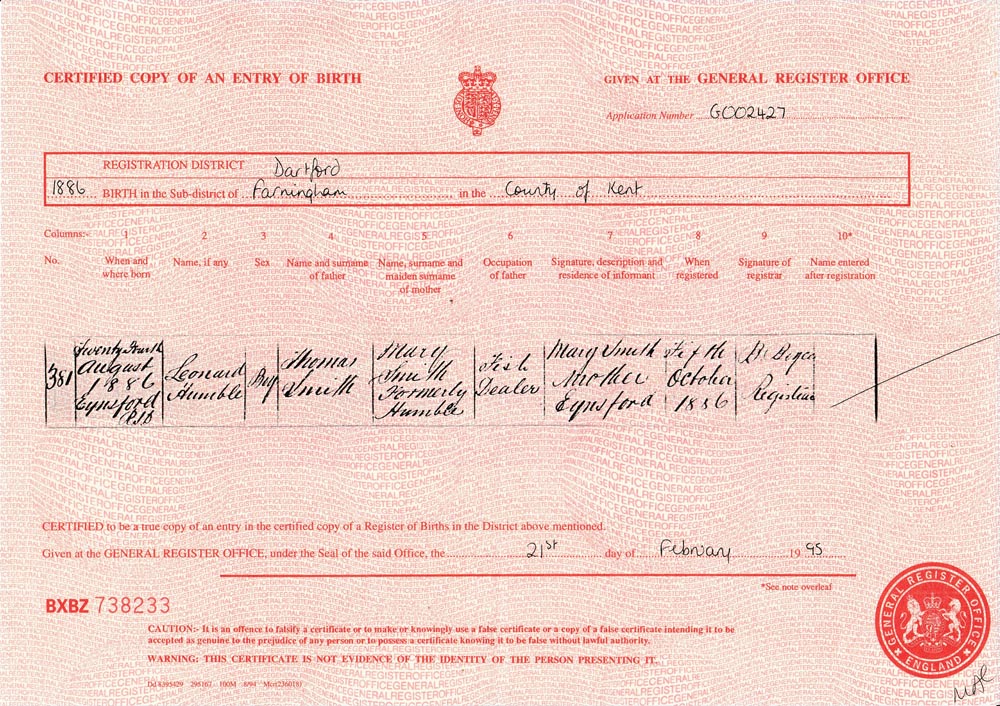 CERTIFIED COPY OF AN ENTRY OF BIRTH
GIVEN AT THE GENERAL REGISTER OFFICE
Application Number G002427
REGISTRATION DISTRICT Dartford
1886 BIRTH in the Sub-district of Farningham in the County of Kent
Columns:- 1 2 3 4 5 6 7 8 9 10*
No.
When and
where born
Name, if any
Sex
Name and surname
of father
Name, surname and
maiden surname
of mother
Occupation
of father
Signature, description and
residence of informant
When
registered
Signature of
registrar
Name entered
after registration
381
Twenty Fourth
August
1886
Eynsford
RSD
Leonard
Humble
Boy
Thomas
Smith
Mary
Smith
Formerly
Humble
Fish
Dealer
Mary Smith
Mother
Eynsford
Fifth
October
1886
Registrar
CERTIFIED to be a true copy of an entry in the certified copy of a Register of Births in the District above mentioned.
Given at the GENERAL REGISTER OFFICE, under the Seal of the said Office, the 21st day of February 1995
*See note overleaf
BXBZ 738233
CAUTION:- It is an offence to falsify a certificate or to make or knowingly use a false certificate or a copy of a false certificate intending it to be
accepted as genuine to the prejudice of any person or to possess a certificate knowing it to be false without lawful authority.
WARNING: THIS CERTIFICATE IS NOT EVIDENCE OF THE IDENTITY OF THE PERSON PRESENTING IT.
100M 8/94
GENERAL REGISTER OFFICE
ENGLAND